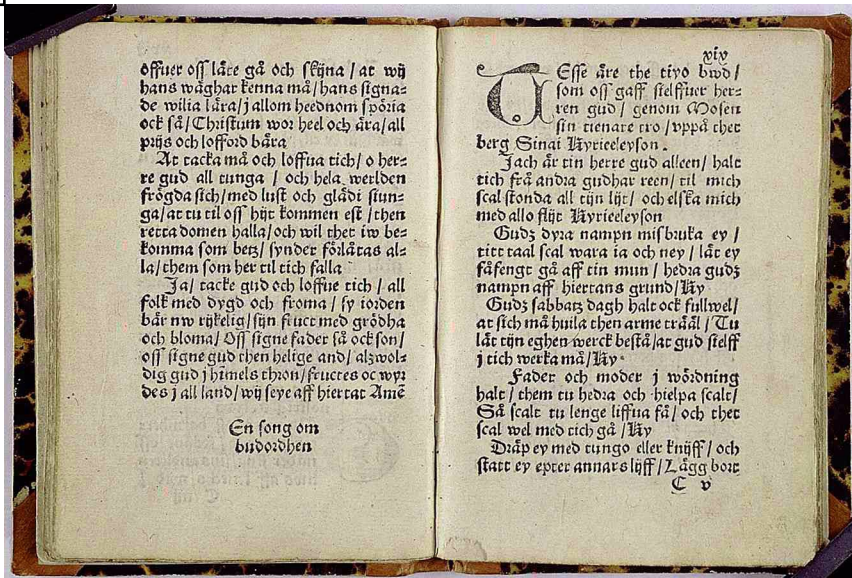 offuer oss läte gå och skijna / at wij
hans wäghar kenna må / hans signa-
de wilia lära / j allom heednom spöria
ock så / Christum wor heel och ära / all
prijs och lofford bära
At tacka må och loffua tich / o her-
re gud all tunga / och hela werlden
frögda sich / med lust och glädi siun-
ga / at tu til oss hijt kommen est / then
retta domen halla / och wil thet iw be-
komma som betz / synder förlätas al-
la / them som her til tich falla
Ja / tacke gud och loffue tich / all
folk med dygd och froma / sy iorden
bär nw rijkelig / sijn fruct med grödha
och bloma / Oss signe fader så ock son /
oss signe gud then helige and / alzwol-
dig gud j himels thron / fructes oc wyr
des j all land / wij seye aff hiertat Amē
En song om
budordhen
xix
Esse äre the tiyo bwd /
som oss gaff sielffuer her-
ren gud / genom Mosen
sin tienare tro / vppå thet
berg Sinai Kyrieeleyson.
Jach är tin herre gud alleen / halt
tich frå andra gudhar reen / til mich
scal stonda all tijn lijt / och elska mich
med allo flijt Kyrieeleyson
Gudz dyra nampn misbruka ey /
titt taal scal wara ia och ney / lät ey
fåfengt gå aff tin mun / hedra gudz
nampn aff hiertans grund / Ky
Gudz sabbatz dagh halt ock fullwel /
at sich må huila then arme trääl / Tu
lät tijn eghen werck bestå / at gud sielff
j tich werka må / Ky.
Fader och moder j wördning
halt / them tu hedra och hielpa scalt /
Så scalt tu lenge liffua få / och thet
scal wel med tich gå / Ky
Dräp ey med tungo eller knijff / och
statt ey epter annars lijff / Lägg bort
C v